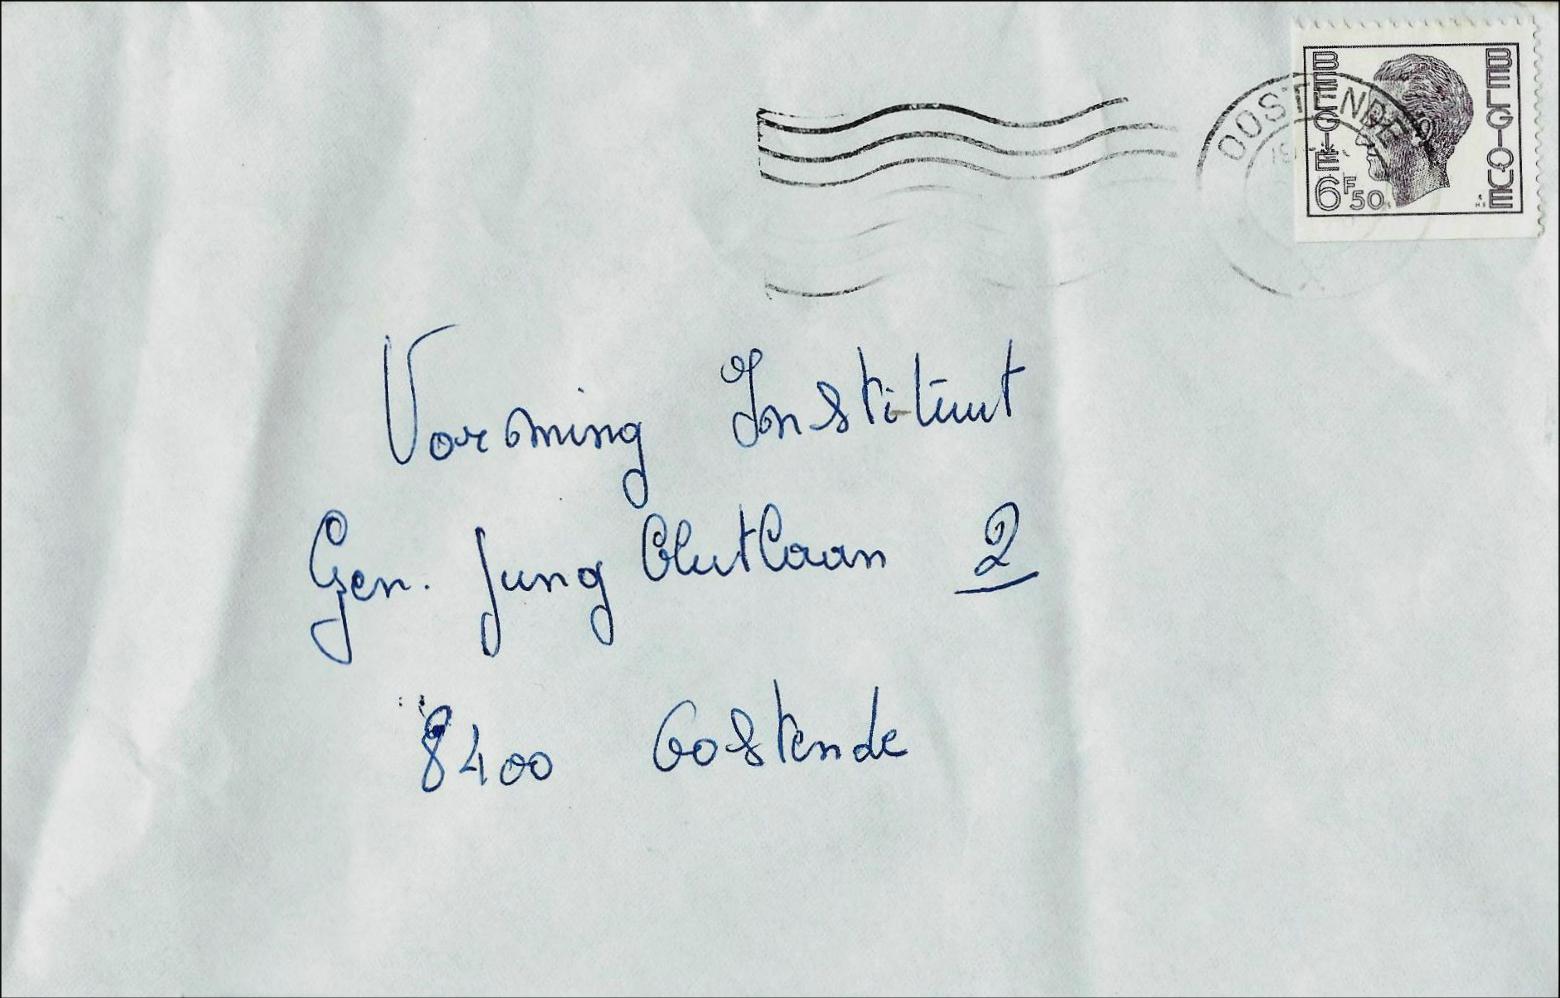 BELGIE BELGIQUE
6F50
OOSTENDE
Vorming Instituut
Gen. Jung Blutlaan 2
8400 Oostende